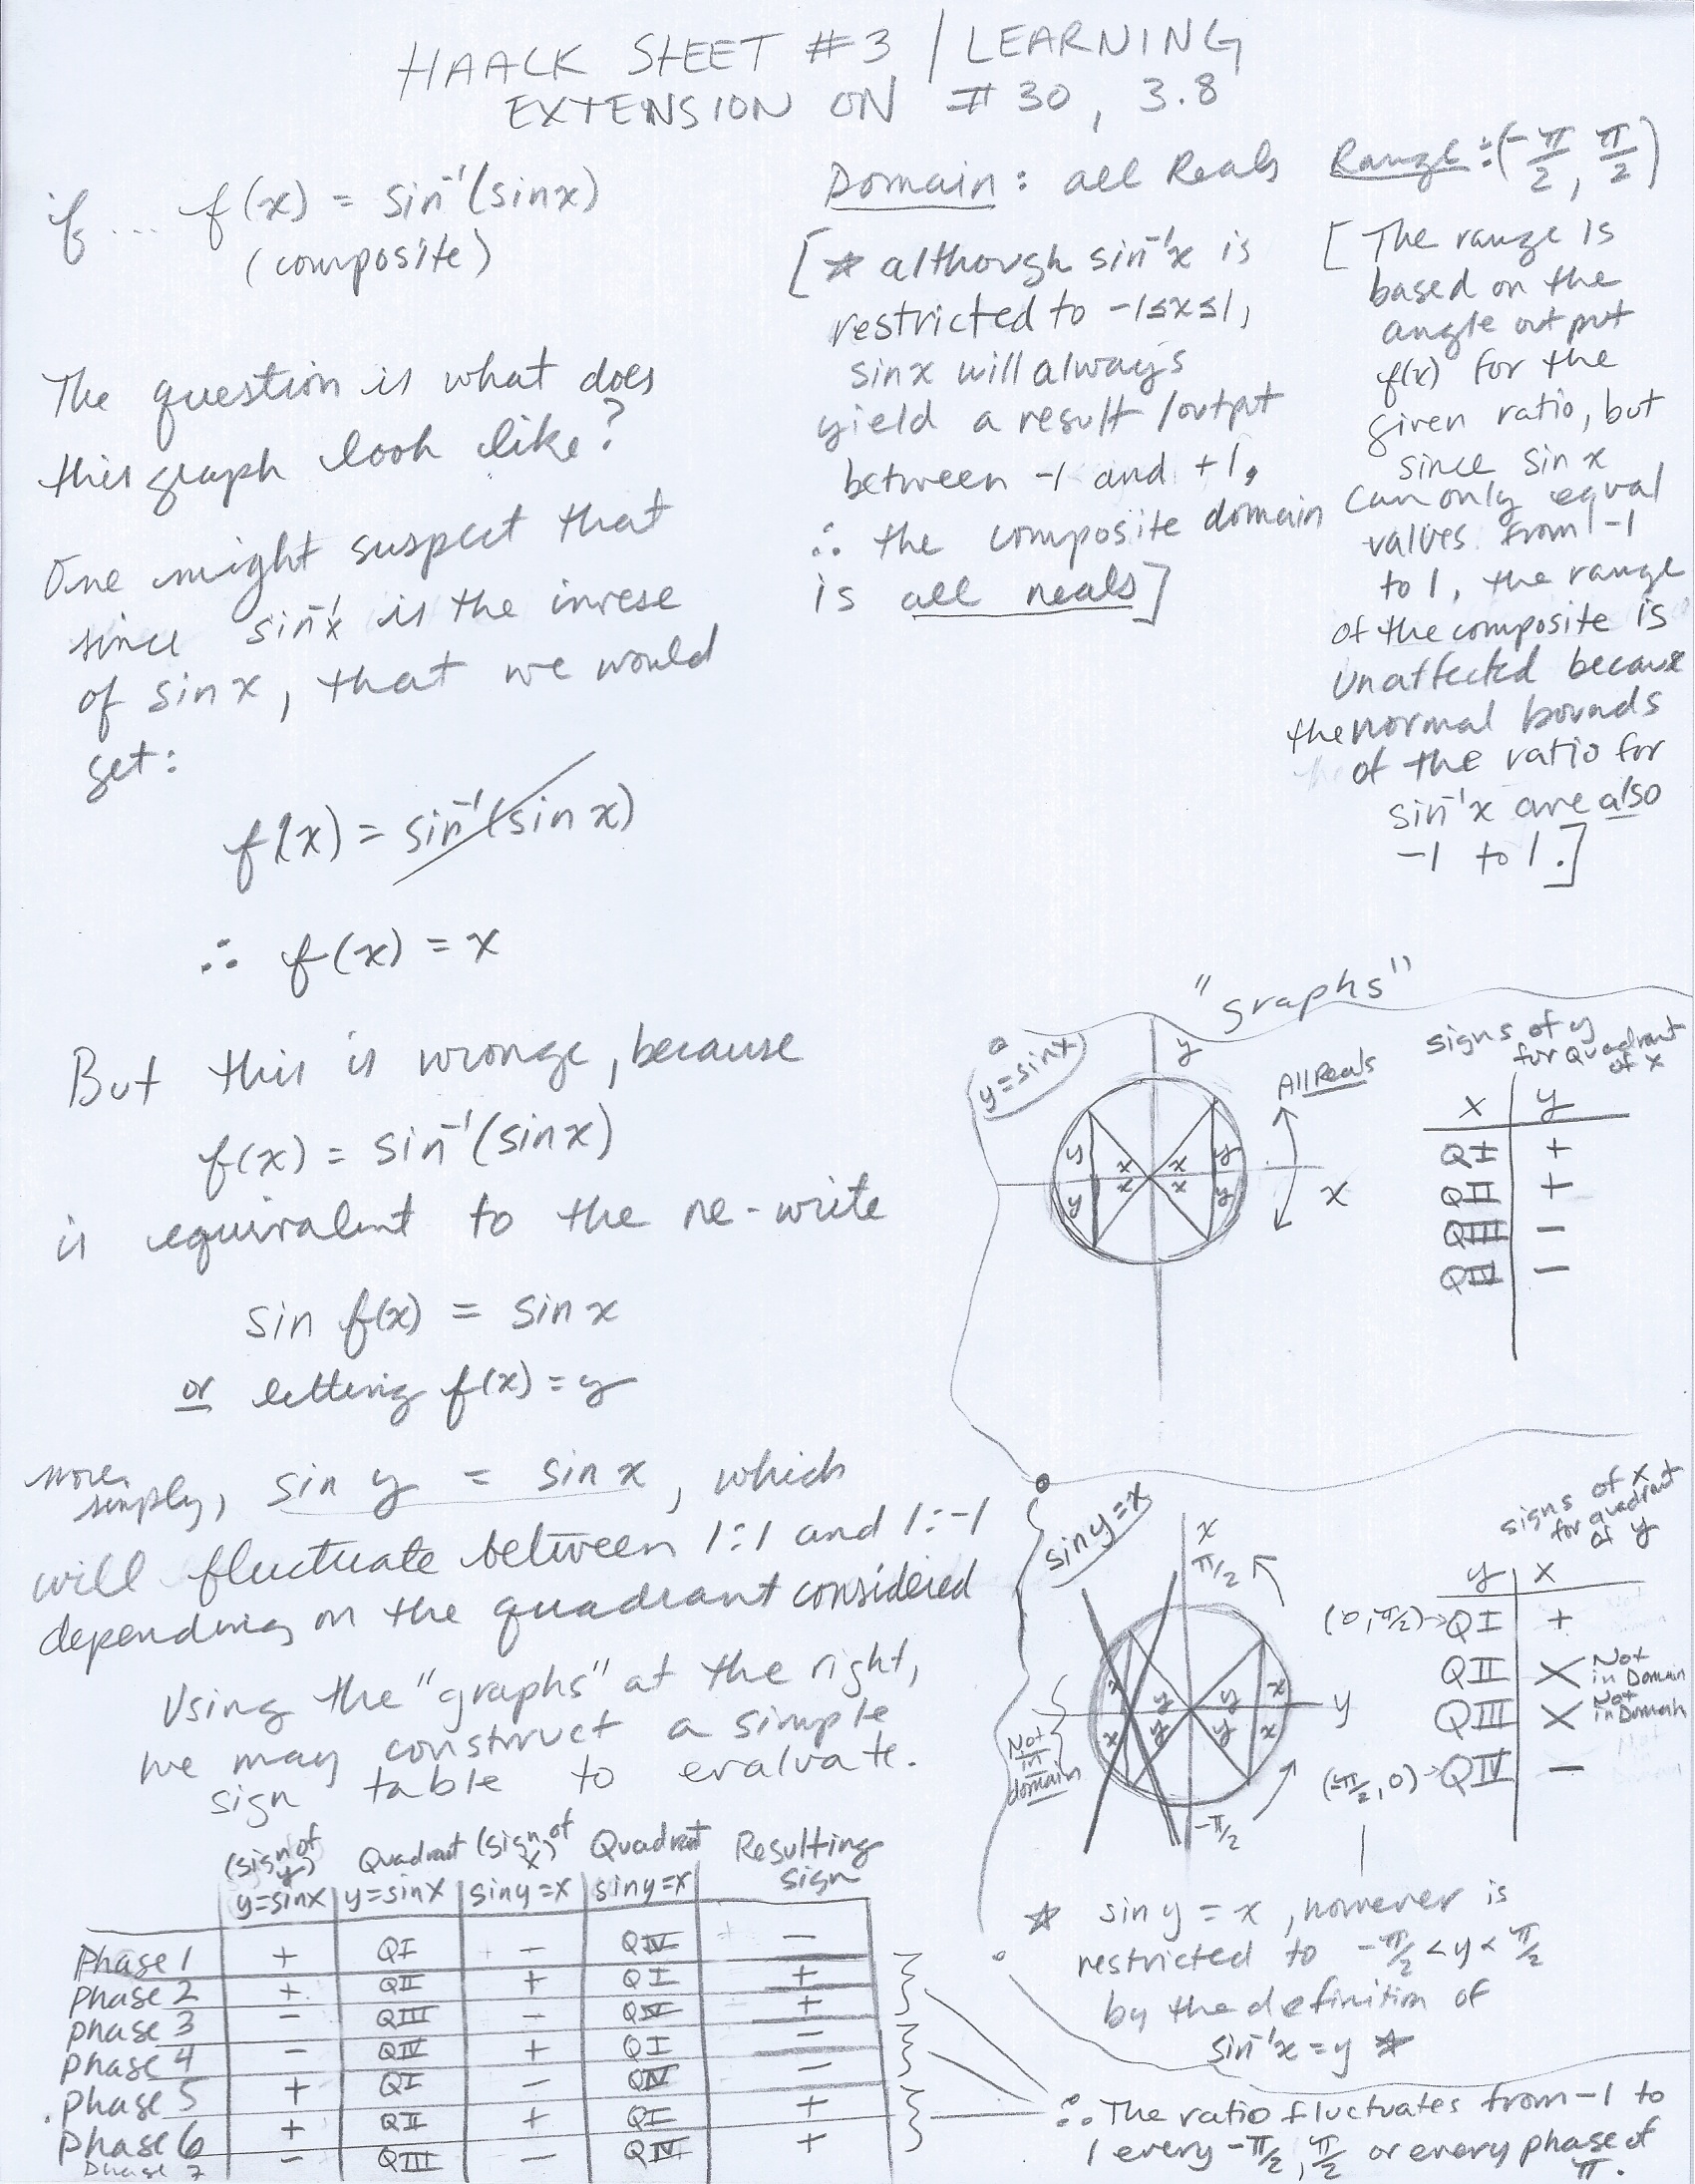 HAACK SHEET #3 / LEARNING
EXTENSION ON #30, 3.8
if... f(x) = sin⁻¹(sinx)
(composite)
The question is what does
this graph look like?
One might suspect that
since sin⁻¹x is the inrese
of sin x, that we would
get:
f(x) = sin⁻¹(sin x)
∴ f(x) = x
But this is wronge, because
f(x) = sin⁻¹(sinx)
is equivalent to the re-write
sin f(x) = sin x
or letting f(x) = y
more
simply, sin y = sin x, which
will fluctuate between 1:1 and 1:-1
depending on the quadrant considered
Using the "graphs" at the right,
we may construct a simple
sign table to evaluate.
Domain: all Reals
[* although sin⁻¹x is
restricted to -1≤x≤1,
sinx will always
yield a result/output
between -1 and +1,
∴ the composite domain
is all reals]
Range: (-π/2, π/2)
[The range is
based on the
angle output
f(x) for the
given ratio, but
since sin x
can only equal
values from -1
to 1, the range
of the composite is
unaffected because
the normal bounds
of the ratio for
sin⁻¹x are also
-1 to 1.]
"graphs"
y=sinx
y
All Reals
x
y x x y
y x x y
signs of y
for Quadrant
of x
x y
QI +
QII +
QIII −
QIV −
sin y = x
x
π/2
y
x y y x
x y y x
Not
in
domain
-π/2
signs of x
for quadrant
of y
y x
(0, π/2)→QI +
QII X Not in Domain
QIII X Not in Domain
(-π/2, 0)→QIV −
* sin y = x, however is
restricted to -π/2 < y < π/2
by the definition of
sin⁻¹x = y *
(sign of y) Quadrant (sign of x) Quadrant Resulting
y=sinx y=sinx siny=x siny=x sign
Phase 1 + QI − QIV −
Phase 2 + QII + QI +
phase 3 − QIII − QIV +
phase 4 − QIV + QI −
phase 5 + QI − QIV −
phase 6 + QII + QI +
phase 7 − QIII − QIV +
∴ The ratio fluctuates from -1 to
1 every -π/2, π/2 or every phase of
π.